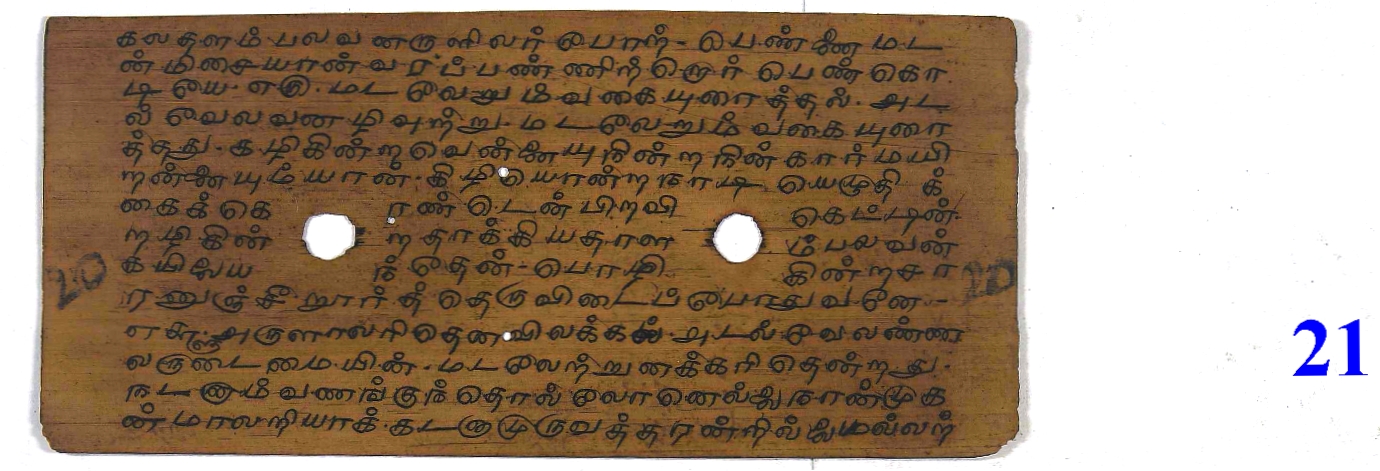 கலதளம் பலவனருளிலர் போற் - பெண்ணை மட
ன்மிசையான் வரப்பண்ணிற்றோர் பெண்கொ
டியே. எகு. மடலேறும்வகையுரைத்தல். அட
ல் வேலவனழிவுற்று. மடலேறும் வகையுரை
த்தது. கழிகின்றவென்னையுநின்றநின்கார்மயி
றன்னையும்யான். கிழியொன்றநாடி யெழுதி க்
கைக் கெ ரண்டென் பிறவி கெட்டின்
றழிகின் றதாக்கியதாள ம்பலவன்
கயிலைய ந்தேன் - பொழி கின்றசா
ரனுஞ்சீறூர்த் தெருவிடைப்போதுவனே -
எஅ. அருளாலரிதெனவிலக்கல். அடல்வேலண்ண
லருடைமையின். மடலேற்றுனக்கரிதென்றது.
நடனாம்வணங்குந்தொல்லோனெல்லைநான்முக
ன்மாலறியாக். கடனாமுருவத்தரன்றில்லைமல்லற்
20
20
21